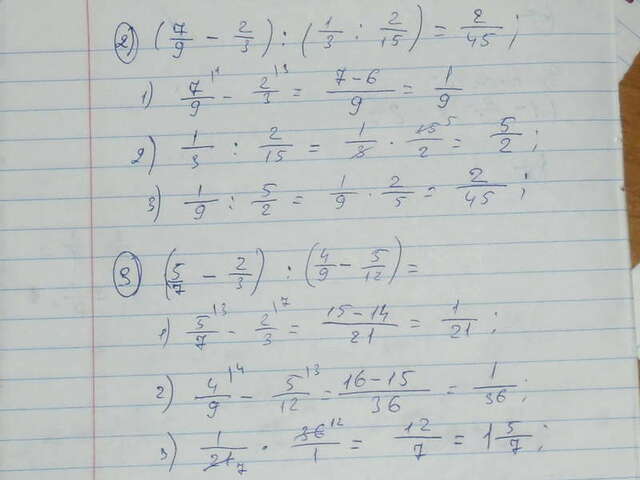 2) (7/9 - 2/3) : (1/3 : 2/15) = 2/45;
1) 7/9 |1 - 2/3 |3 = 7-6/9 = 1/9
2) 1/3 : 2/15 = 1/3 · 15 5/2 = 5/2;
3) 1/9 : 5/2 = 1/9 · 2/5 = 2/45;
3) (5/7 - 2/3) : (4/9 - 5/12) =
1) 5/7 |3 - 2/3 |7 = 15-14/21 = 1/21;
2) 4/9 |4 - 5/12 |3 = 16-15/36 = 1/36;
3) 1/21 7 · 36 12/1 = 12/7 = 1 5/7;